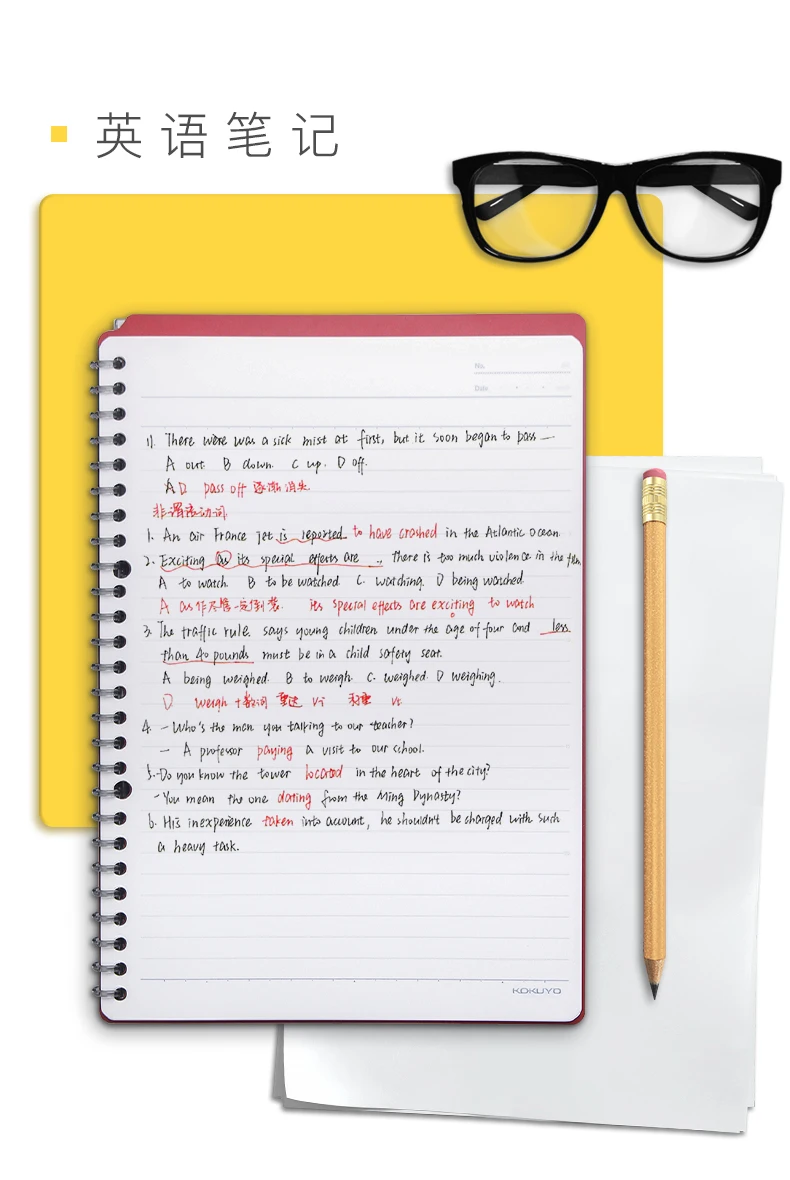 英语笔记
No.
Date
11. There were was a sick mist at first, but it soon began to pass —
A out. B down. C up. D off.
A D pass off 逐渐消失.
非谓语动词
1. An air France jet is reported to have crashed in the Atlantic Ocean.
2. Exciting as its special effects are .., there is too much violence in the film
A to watch. B to be watched. C. watching. D being watched.
A as 作尽管一定倒装. its special effects are exciting to watch
3. The traffic rule. says young children under the age of four and less
than 40 pounds must be in a child safety seat.
A being weighed. B to weigh. C. weighed. D weighing.
D weigh + 数词 重达 vi 称重 vt
4. - Who's the man you talking to our teacher?
- A professor paying a visit to our school.
5. -Do you know the tower located in the heart of the city?
-You mean the one dating from the Ming Dynasty?
6. His inexperience taken into account, he shouldn't be charged with such
a heavy task.
KOKUYO